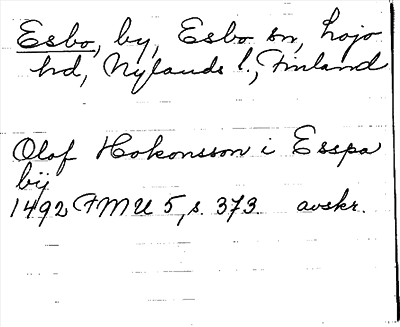 Esbo, by, Esbo sn, Lojo
hd, Nylands l., Finland
Olaf Hokonsson i Esspa
bij
1492 FMU 5, s. 373 avskr.